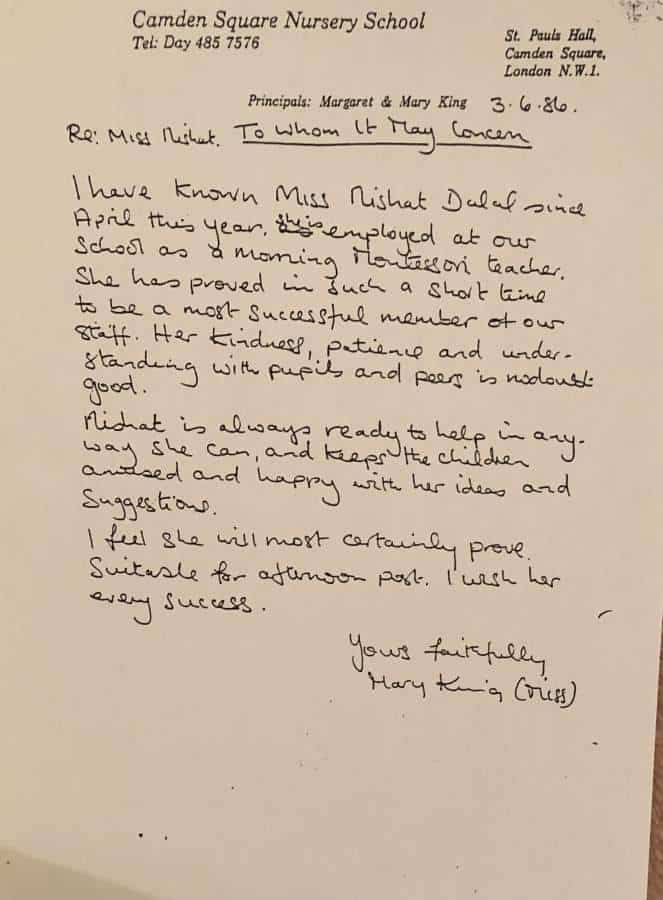 Camden Square Nursery School
Tel: Day 485 7576
St. Pauls Hall,
Camden Square,
London N.W.1.
Principals: Margaret & Mary King 3.6.86.
Re: Miss Nishat. To Whom It May Concern
I have known Miss Nishat Dalal since
April this year. She is employed at our
School as a morning Montessori teacher.
She has proved in such a short time
to be a most successful member of our
staff. Her kindness, patience and under-
standing with pupils and peers is nodoubt
good.
Nishat is always ready to help in any-
way she can, and keeps the children
amused and happy with her ideas and
Suggestions.
I feel she will most certainly prove.
Suitable for afternoon post. I wish her
every success.
Yours faithfully
Mary King (Miss)